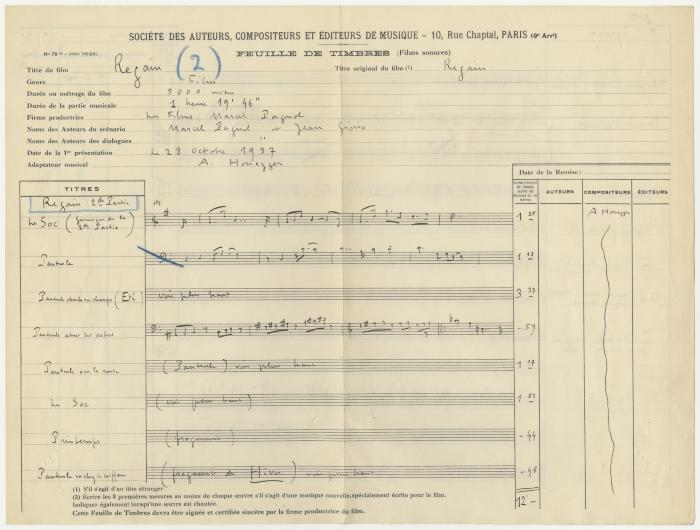 SOCIÉTÉ DES AUTEURS, COMPOSITEURS ET ÉDITEURS DE MUSIQUE – 10, Rue Chaptal, PARIS (9e Arrt)
FEUILLE DE TIMBRES (Films sonores)
Titre du film Regain (2) Titre original du film (1) Regain
Genre Film
Durée ou métrage du film 5000 mètres
Durée de la partie musicale 1 heure 19' 46"
Firme productrice Les Films Marcel Pagnol
Noms des Auteurs du scénario Marcel Pagnol et Jean Giono
Noms des Auteurs des dialogues "
Date de la 1re présentation Le 28 Octobre 1937
Adaptateur musical A. Honegger
Date de la Remise :
TITRES
AUTEURS COMPOSITEURS ÉDITEURS
Regain 2de Partie
(2)
Le Soc (Générique de la 2de Partie) 1 28 A. Honegger
Panturle 1 12
Panturle (Eté) voir plus haut 3 37
Panturle - 59
Panturle sur la route (Panturle) voir plus haut 1 17
Le Soc (voir plus haut) 1 52
Printemps (fragment) - 44
Panturle (fragment de Hiver) voir plus haut - 48
12' -
(1) S'il s'agit d'un film étranger.
(2) Écrire les 8 premières mesures au moins de chaque œuvre s'il s'agit d'une musique nouvelle, spécialement écrite pour le film.
Indiquer également lorsqu'une œuvre est chantée.
Cette Feuille de Timbres devra être signée et certifiée sincère par la firme productrice du film.